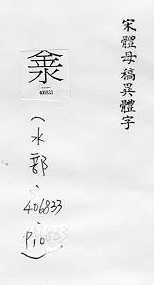 宋體母稿異體字
406833
(水部、406833、P10)